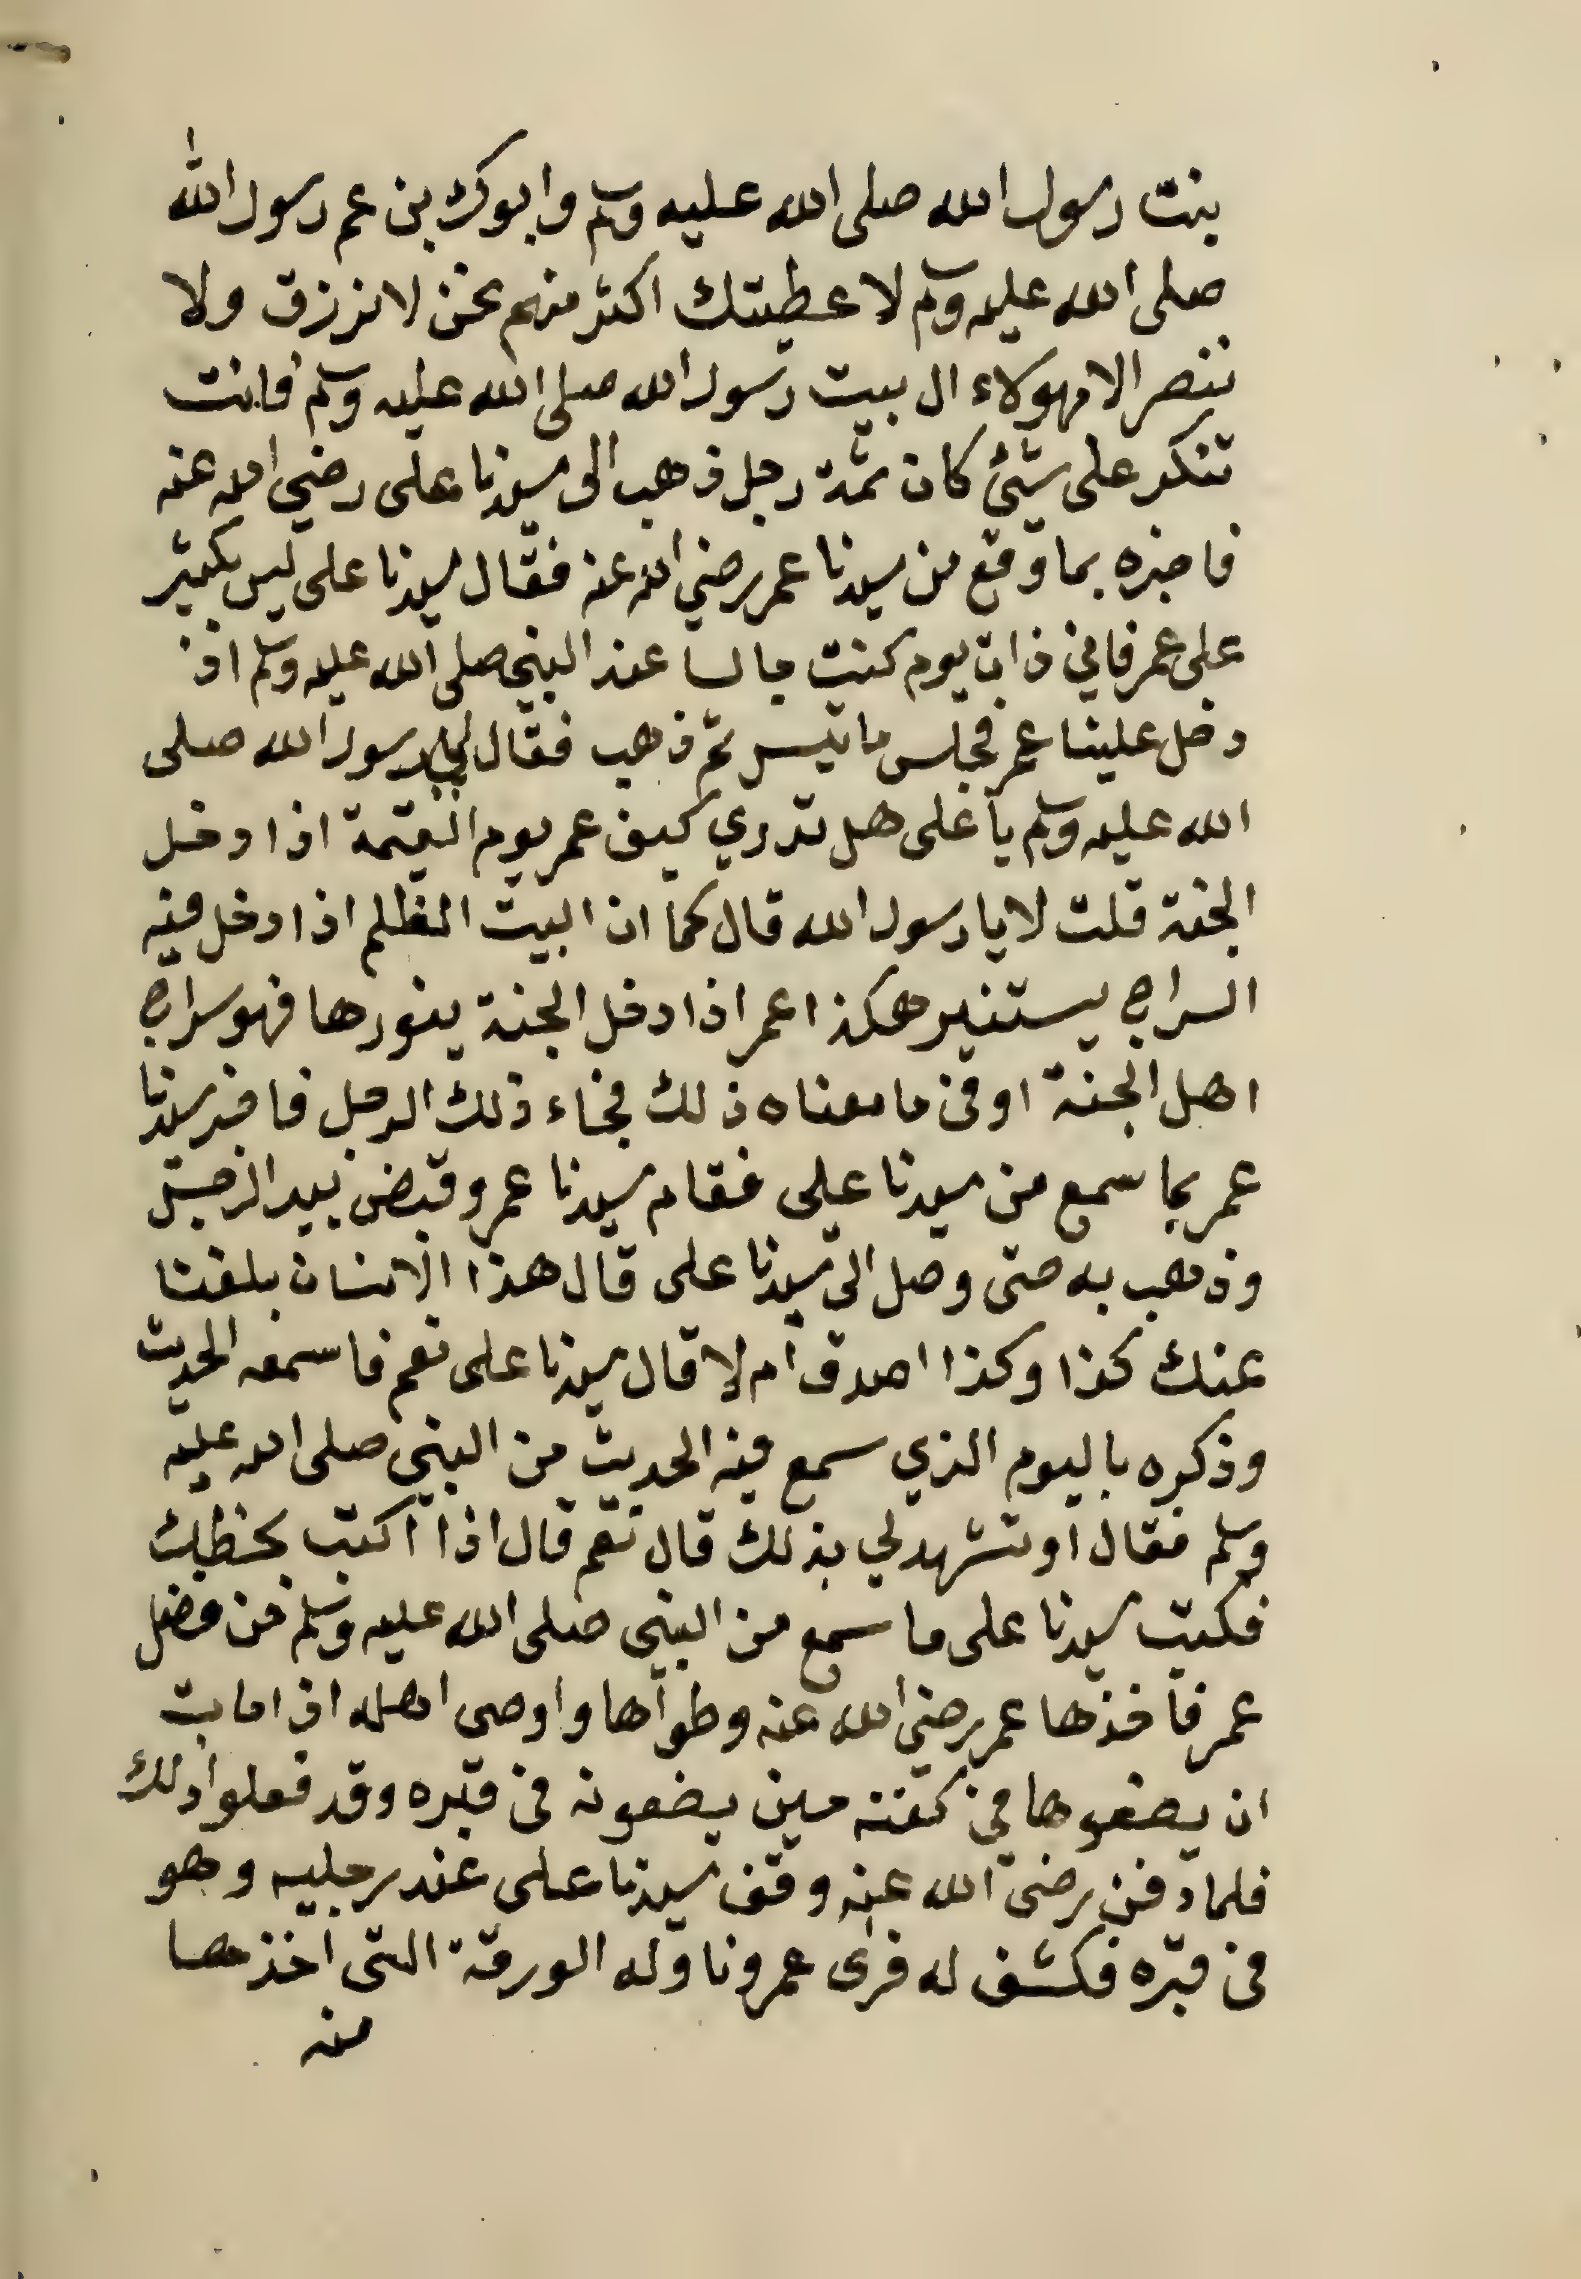 بنت رسول الله صلى الله عليه وسلم وابوك بن عم رسول الله
صلى الله عليه وسلم لاعطيتك اكثر منهم نحن لا نرزق ولا
ننصر الا بهولاء ال بيت رسول الله صلى الله عليه وسلم فانت
تنكر على شئ كان ثمة رجل ذهب الى سيدنا على رضي الله عنه
فاخبره بما وقع من سيدنا عمر رضي الله عنه فقال سيدنا على ليس بكثير
على عمر فاني ذات يوم كنت جالسا عند النبي صلى الله عليه وسلم اذ
دخل علينا عمر فجلس ما تيسر ثم ذهب فقال لي رسول الله صلى
الله عليه وسلم يا على هل تدري كيف عمر يوم القيمة اذا دخل
الجنة قلت لا يا رسول الله قال كما ان البيت المظلم اذا دخل فيه
السراج يستنير هكذا عمر اذا دخل الجنة ينورها فهو سراج
اهل الجنة او في ما معناه ذلك فجاء ذلك الرجل فاخبر سيدنا
عمر بما سمع من سيدنا على فقام سيدنا عمر وقبض بيد الرجل
وذهب به حتى وصل الى سيدنا على قال هذا الانسان بلغنا
عنك كذا وكذا اصدق ام لا قال سيدنا على نعم فاسمعه الحديث
وذكره باليوم الذي سمع فيه الحديث من النبي صلى الله عليه
وسلم فقال اوتشهد لي بذلك قال نعم قال اذا اكتب بخطك
فكتب سيدنا على ما سمع من النبي صلى الله عليه وسلم من فضل
عمر فاخذها عمر رضي الله عنه وطواها واوصى اهله اذا مات
ان يضعوها في كفنه حين يضعونه في قبره وقد فعلوا ذلك
فلما دفن رضي الله عنه وقف سيدنا على عند رجليه وهو
في قبره فكشف له فرأى عمر وناوله الورقة التى اخذها
منه